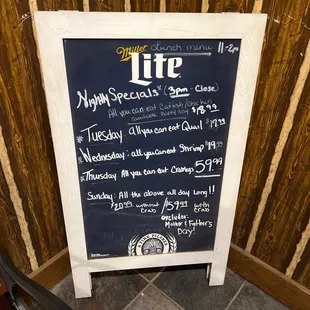 Miller Lunch menu 11-2pm
Lite
Nightly Specials* (3pm - Close)
All you can eat Catfish/Chicken
available everyday $18.99
* Tuesday all you can eat Quail $19.99
* Wednesday: all you can eat Shrimp $19.99
* Thursday All you can eat Crablegs 59.99
Sunday: All the above all day long!!
$20.99 without crab / $59.99 with crab
excludes:
Mother & Father's
Day!
A FINE PILSNER